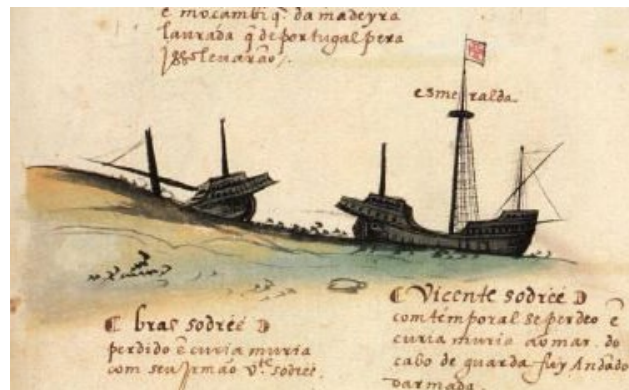 e moçambiq̃. da madeyra
laurada q̃ de portugal pera
leuarão/.
esmeralda
bras sodréé
perdido ẽ curia muria
com seu Jrmão vte sodreé.
Vicente sodréé
com temporal se perdeo ẽ
curia muria ao mar. do
cabo de guarda fuy Andãdo
darmada